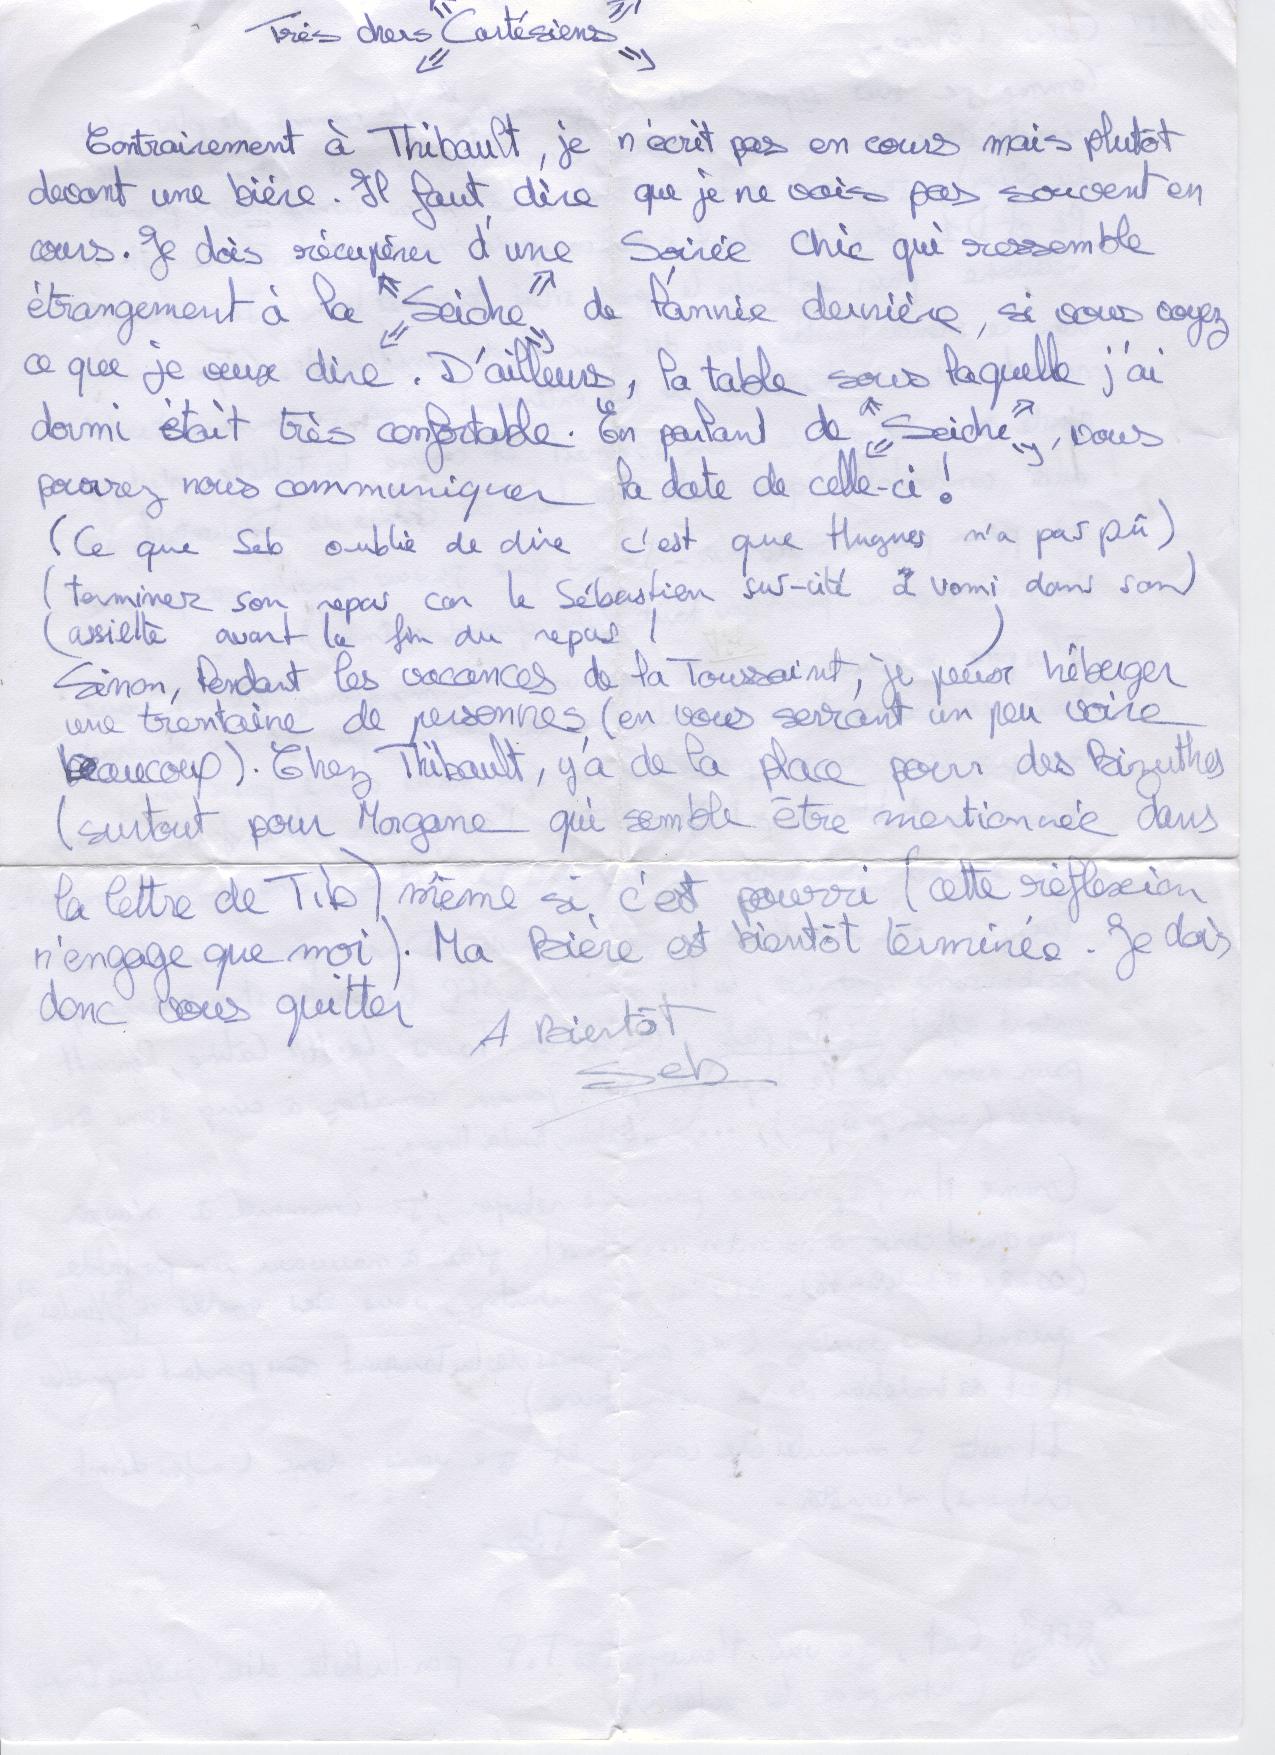 Très chers Cartésiens
Contrairement à Thibault, je n'écrit pas en cours mais plutôt
devant une bière. Il faut dire que je ne vais pas souvent en
cours. Je dois récupérer d'une Soirée Chic qui ressemble
étrangement à la "Seiche" de l'année dernière, si vous voyez
ce que je veux dire. D'ailleurs, la table sous laquelle j'ai
dormi était très confortable. En parlant de "Seiche", vous
pourrez nous communiquer la date de celle-ci !
(Ce que Seb oublie de dire c'est que Hugues n'a pas pû)
(terminer son repas car le Sébastien sus-cité a vomi dans son)
(assiette avant la fin du repas ! )
Sinon, Pendant les vacances de la Toussaint, je peux héberger
une trentaine de personnes (en vous serrant un peu voire
beaucoup). Chez Thibault, y'a de la place pour des Bizuthes
(surtout pour Morgane qui semble être mentionnée dans
la lettre de Tib) même si c'est pourri (cette réflexion
n'engage que moi). Ma Bière est bientôt terminée. Je dois
donc vous quitter
A Bientôt
Seb